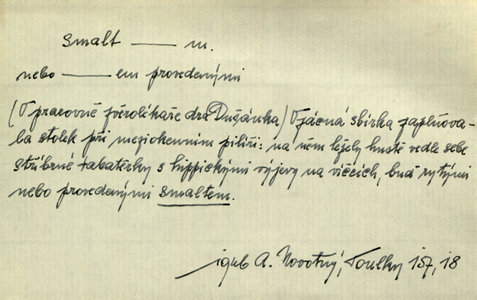 smalt — m.
nebo — em provedenými
(V pracovně zvěrolékaře dra Dušánka) Vzácná sbírka zaplňova-
la stolek při meziokenním pilíři: na něm ležely hustě vedle sebe
stříbrné tabatěrky s hippickými výjevy na víčcích, buď rytými
nebo provedenými smaltem.
A. Novotný, Toulky 157, 18